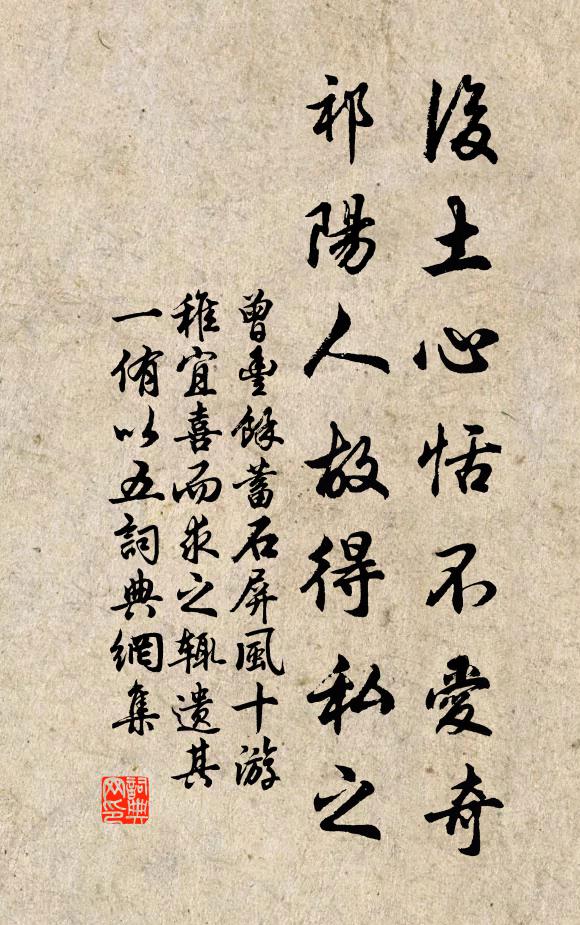 後土心恬不愛奇
祁陽人故得私之
曾豐餘蓄石屏風十游
稚宜喜而求之輒遺其
一侑以五詞典網集
詞典网印